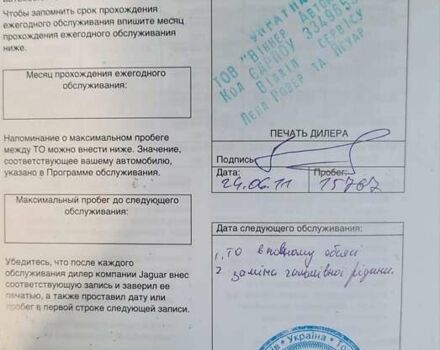 Чтобы запомнить срок прохождения
ежегодного обслуживания впишите месяц
прохождения ежегодного обслуживания
ниже.
Месяц прохождения ежегодного
обслуживания:
Напоминание о максимальном пробеге
между ТО можно внести ниже. Значение,
соответствующее вашему автомобилю,
указано в Программе обслуживания.
Максимальный пробег до следующего
обслуживания:
Убедитесь, что после каждого
обслуживания дилер компании Jaguar внес
соответствующую запись и заверил ее
печатью, а также проставил дату или
пробег в первой строке следующей записи.
ТОВ "Віннер Автомо
Код ЄДРПОУ
Відділ сервісу
Ленд Ровер та Ягуар
ПЕЧАТЬ ДИЛЕРА
Подпись
Дата: Пробег:
24.06.11 15767
Дата следующего обслуживания:
1. ТО в повному обсязі
2. заміна гальмівної рідини.
Україна